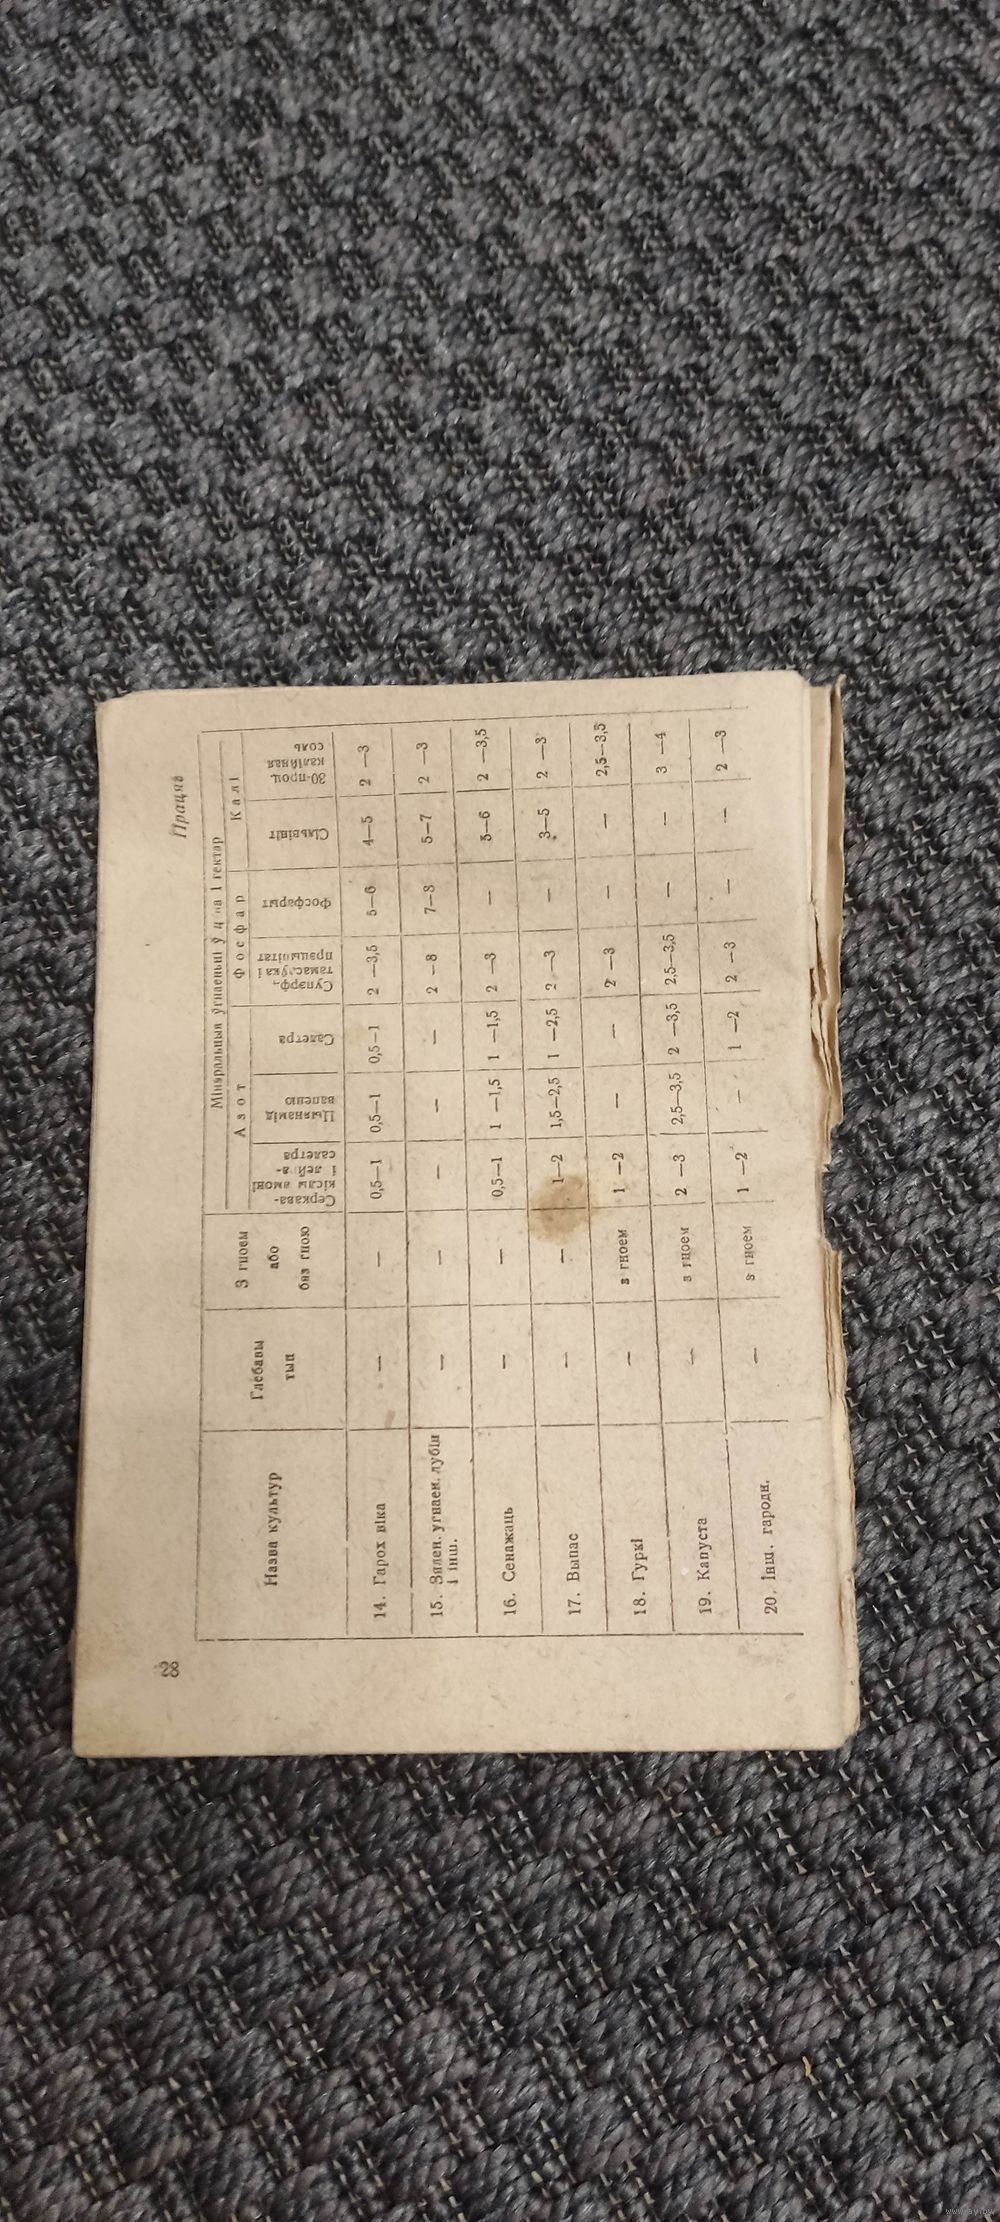 28
Працяг
Назва культур
Глебавы тып
З гноем або бяз гною
Мінэральныя ўгнаеньні ў ц на 1 гектар
Азот
Фосфар
Калі
Серкава-кіслы амоні і лей а-салетра
Цыянамід вапеню
Салетра
Супэрф., тамас.ука і прэцыпітат
Фосфарыт
Сільвініт
30-проц. калійная соль
14. Гарох віка — — 0,5—1 0,5—1 0,5—1 2 —3,5 5—6 4—5 2 —3
15. Зялен. угнаен. лубін і інш. — — — — — 2 —8 7—8 5—7 2 —3
16. Сенажаць — — 0,5—1 1 —1,5 1 —1,5 2 —3 — 5—6 2 —3,5
17. Выпас — — 1—2 1,5—2,5 1 —2,5 2 —3 — 3—5 2 —3
18. Гуркі — з гноем 1 —2 — — 2 —3 — — 2,5—3,5
19. Капуста — з гноем 2 —3 2,5—3,5 2 —3,5 2,5—3,5 — — 3 —4
20. Інш. гародн. — з гноем 1 —2 — 1 —2 2 —3 — — 2 —3
www.ay.by